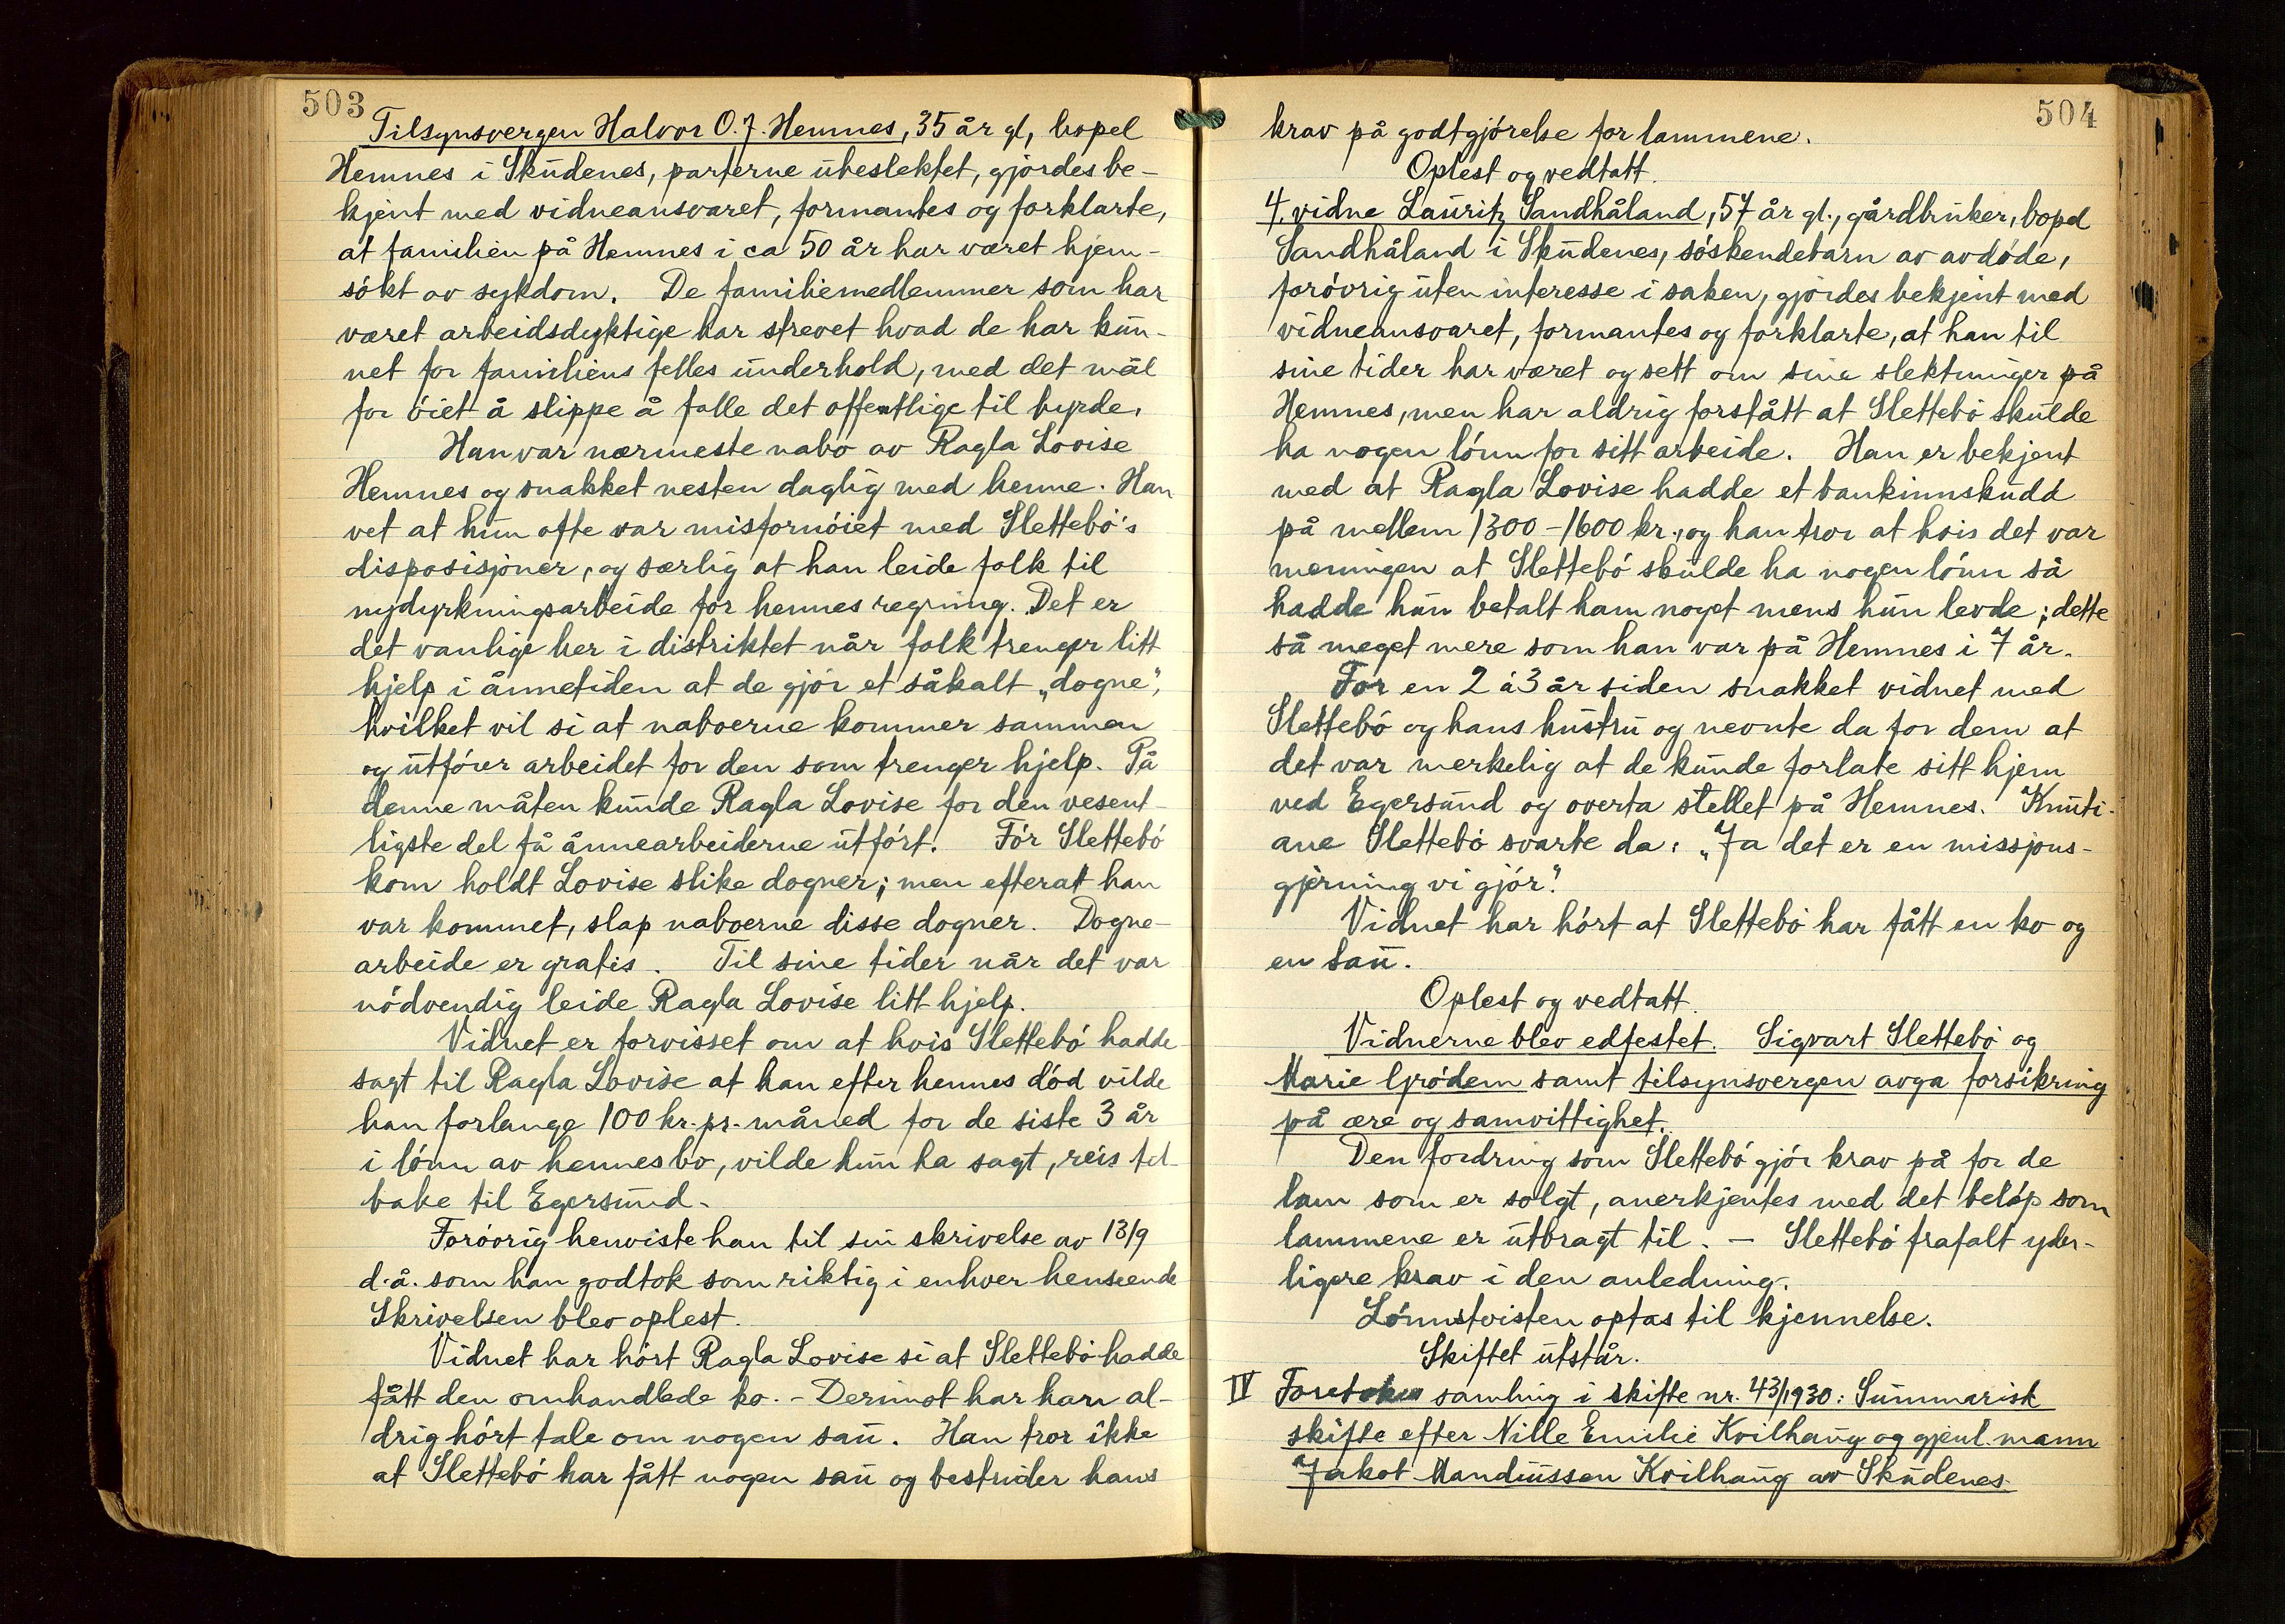 503
Tilsynsvergen Halvor O. J. Hemnes, 35 år gl, bopel
Hemnes i Skudenes, parterne ubeslektet, gjordes be-
kjent med vidneansvaret, formantes og forklarte,
at familien på Hemnes i ca 50 år har været hjem-
søkt av sykdom. De familiemedlemmer som har
været arbeidsdyktige har strevet hvad de har kun-
net for familiens felles underhold, med det mål
for öiet å slippe å falle det offentlige til byrde.
Han var nærmeste nabo av Ragla Lovise
Hemnes og snakket nesten daglig med henne. Han
vet at hun ofte var misfornöiet med Slettebö's
disposisjoner, og særlig at han leide folk til
nydyrkningsarbeide for hennes regning. Det er
det vanlige her i distriktet når folk trenger litt
hjelp i ånnetiden at de gjör et såkalt „dogne",
hvilket vil si at naboerne kommer sammen
og utförer arbeidet for den som trenger hjelp. På
denne måten kunde Ragla Lovise for den vesent-
ligste del få ånnearbeiderne utfört. För Slettebö
kom holdt Lovise slike dogner; men efterat han
var kommet, slap naboerne disse dogner. Dogne-
arbeide er gratis. Til sine tider når det var
nödvendig leide Ragla Lovise litt hjelp.
Vidnet er forvisset om at hvis Slettebö hadde
sagt til Ragla Lovise at han efter hennes död vilde
han forlange 100 kr. pr. måned for de siste 3 år
i lönn av hennes bo, vilde hun ha sagt, reis til-
bake til Egersund.
Foröorig henviste han til sin skrivelse av 13/9
d.å. som han godtok som riktig i enhver henseende
Skrivelsen blev oplest.
Vidnet har hört Ragla Lovise si at Slettebö hadde
fått den omhandlede ko. - Derimot har han al-
drig hört tale om nogen sau. Han tror ikke
at Slettebö har fått nogen sau og bestrider hans
504
krav på godtgjörelse for lammene.
Oplest og vedtatt.
4. vidne Lauritz Sandhåland, 57 år gl., gårdbruker, bopel
Sandhåland i Skudenes, söskendebarn av avdöde,
foröorig uten interesse i saken, gjordes bekjent med
vidneansvaret, formantes og forklarte, at han til
sine tider har været og sett om sine slektninger på
Hemnes, men har aldrig forstått at Slettebö skulde
ha nogen lönn for sitt arbeide. Han er bekjent
med at Ragla Lovise hadde et bankinnskudd
på mellem 1300-1600 kr., og han tror at hvis det var
meningen at Slettebö skulde ha nogen lönn så
hadde hun betalt ham noget mens hun levde; dette
så meget mere som han var på Hemnes i 7 år.
For en 2 à 3 år siden snakket vidnet med
Slettebö og hans hustru og nevnte da for dem at
det var merkelig at de kunde forlate sitt hjem
ved Egersund og overta stellet på Hemnes. Knuti-
ane Slettebö svarte da: „Ja det er en missjons-
gjerning vi gjör".
Vidnet har hört at Slettebö har fått en ko og
en sau.
Oplest og vedtatt.
Vidnerne blev edfestet. Sigvart Slettebö og
Marie Grödem samt tilsynsvergen avga forsikring
på ære og samvittighet.
Den fordring som Slettebö gjör krav på for de
lam som er solgt, anerkjentes med det belöp som
lammene er utbragt til. - Slettebö frafalt yder-
ligere krav i den anledning.
Lönnstvisten optas til kjennelse.
Skiftet utstår.
IV Foretokes samling i skifte nr. 43/1930: Summarisk
skifte efter Nille Emilie Kvilhaug og gjenl. mann
Jakob Mandiussen Kvilhaug av Skudenes